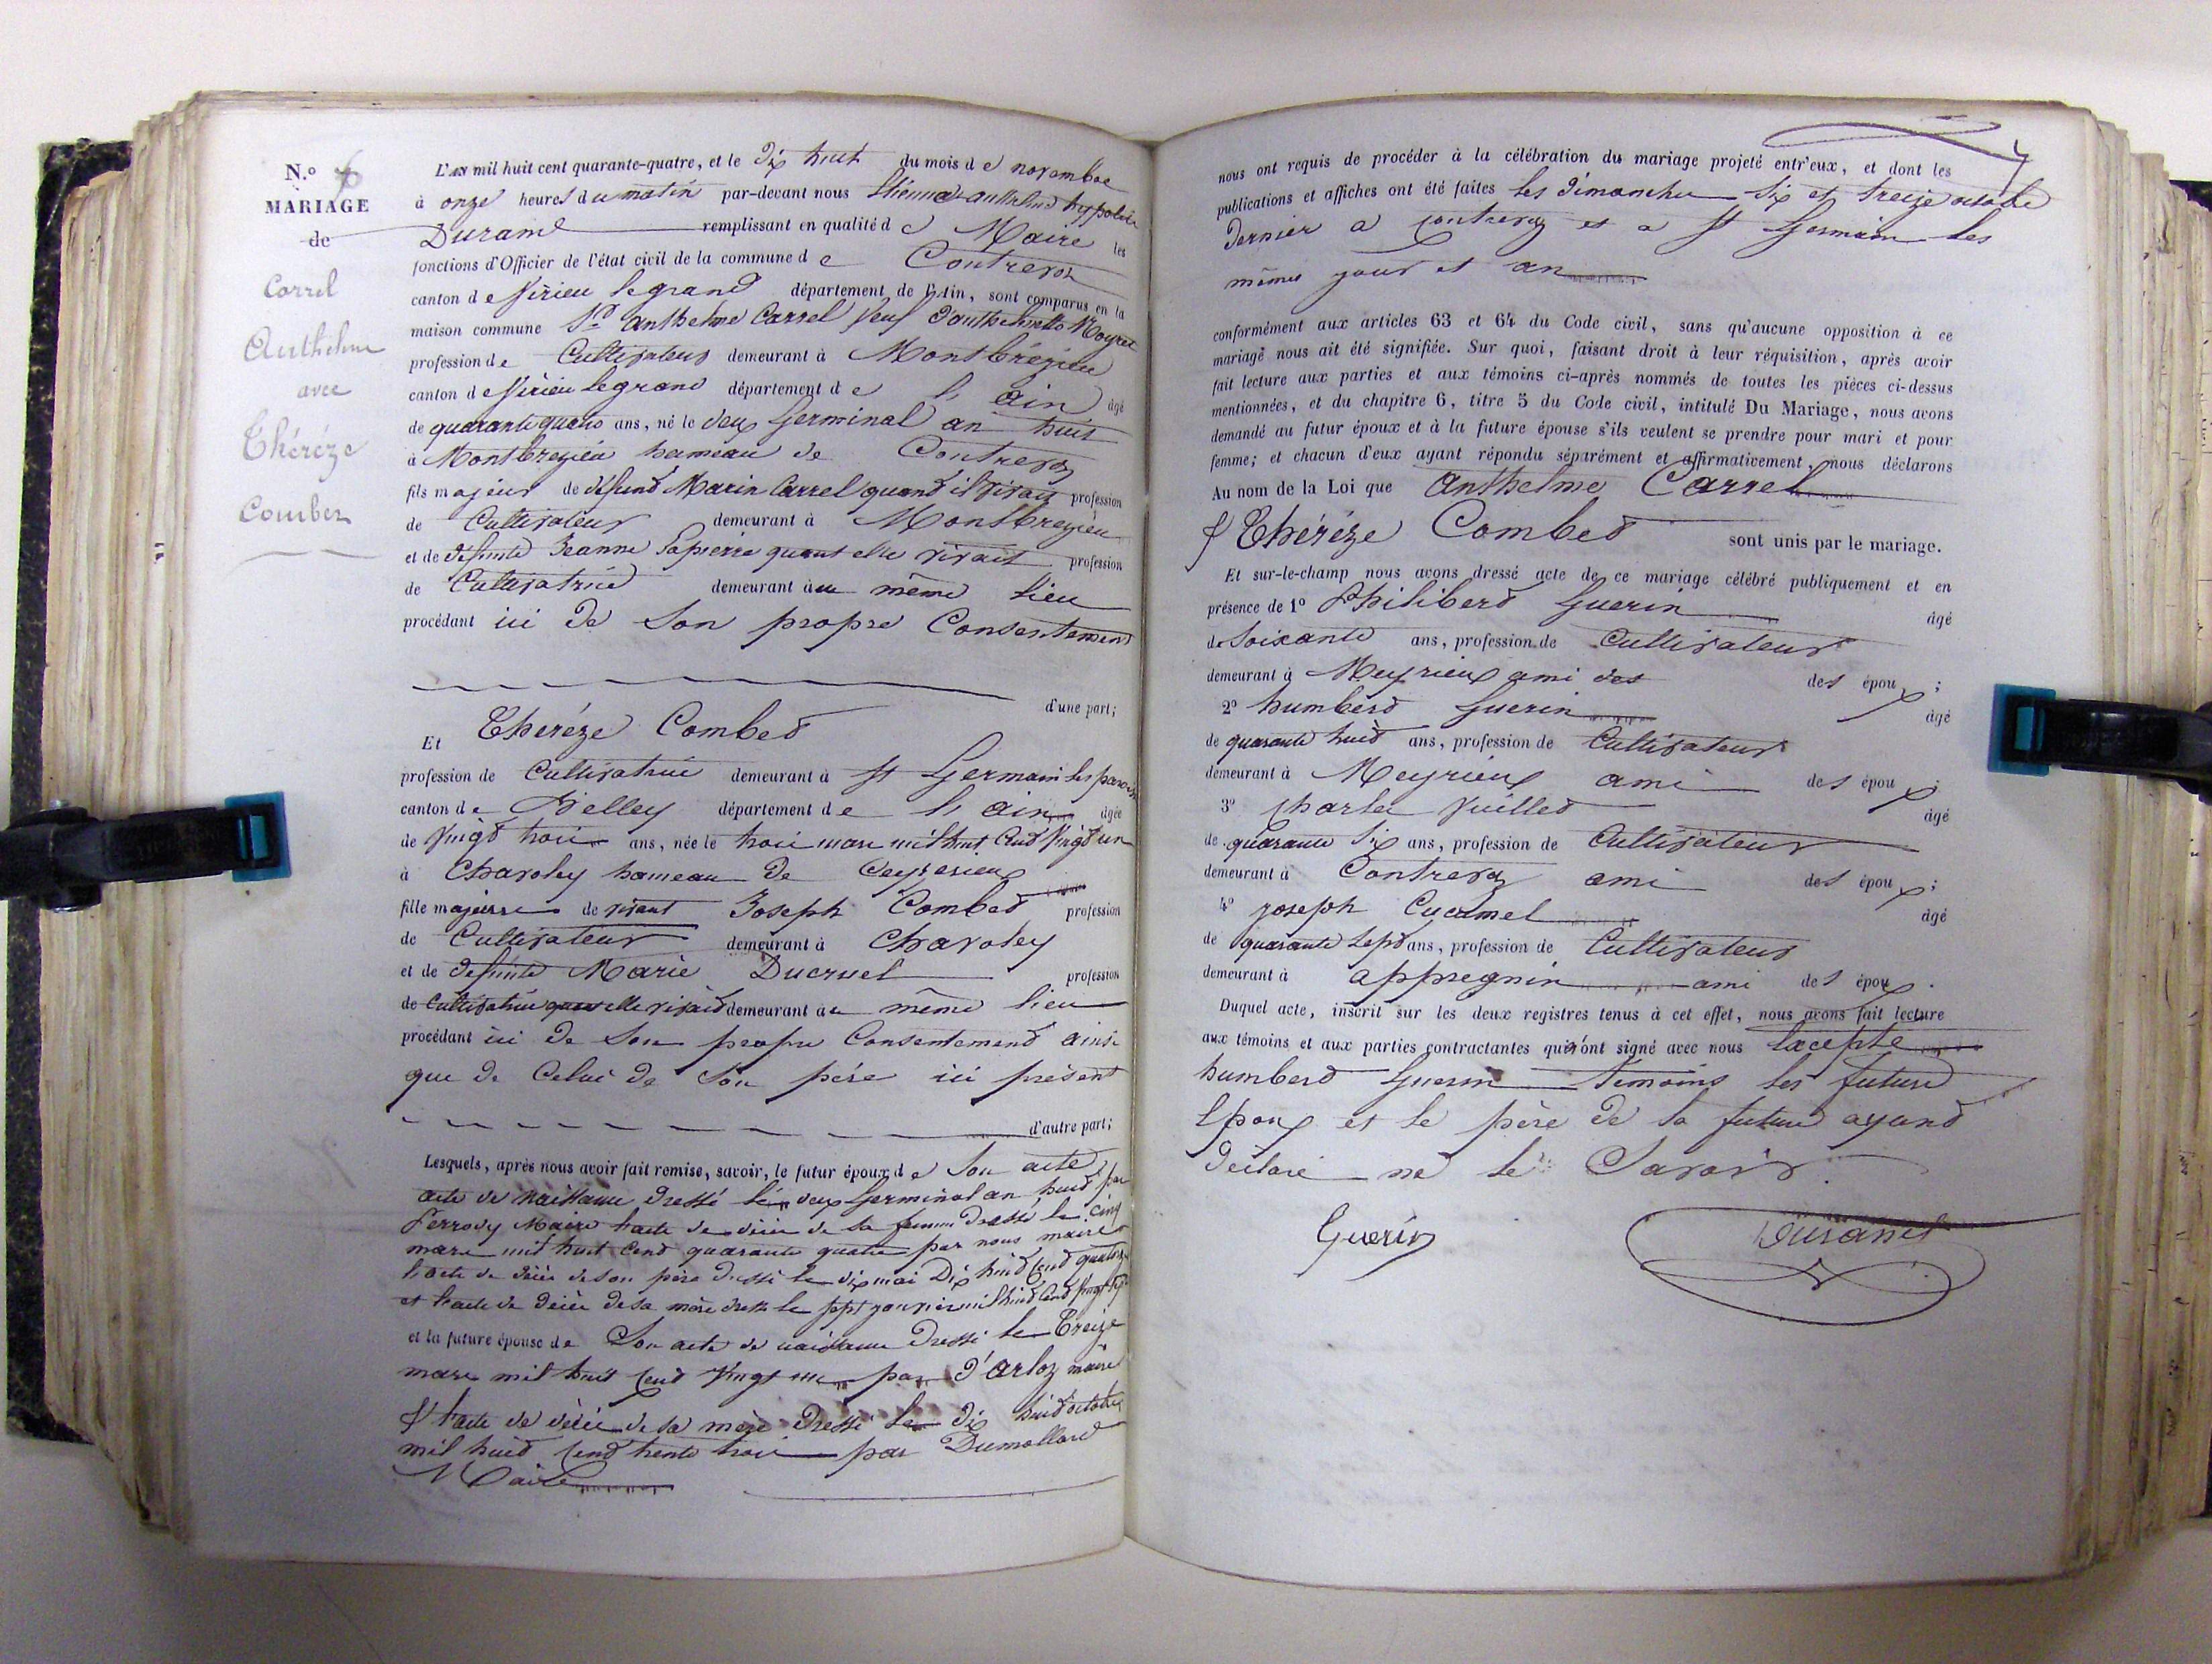 N.º 6
MARIAGE
de
Carrel
Anthelme
avec
Thérèze
Combez
L'AN mil huit cent quarante-quatre, et le Dix huit du mois de novembre
à onze heures du matin par-devant nous Etienne anthelme hypolite
Durand remplissant en qualité de Maire les
fonctions d'Officier de l'état civil de la commune de Contrevoz
canton de Virieu legrand département de l'Ain, sont comparus en la
maison commune Sr anthelme Carrel veuf d'anthelmette Moyret
profession de Cultivateur demeurant à Montbrézieu
canton de Virieu legrand département de l'ain âgé
de quarante quatre ans, né le deux Germinal an huit
à Montbrezieu hameau de Contrevoz
fils majeur de défund Marin Carrel quand il vivait profession
de Cultivateur demeurant à Montbrezieu
et de défunte Jeanne Lapierre quant elle vivait profession
de Cultivatrice demeurant au même lieu
procédant ici de Son propre Consentement
d'une part;
Et Theréze Combed
profession de Cultivatrice demeurant à St Germain les paroisses
canton de Belley département de l'ain âgée
de Vingt trois ans, née le trois mars mil huit Cend Vingd un
à Chavoley hameau de Ceyzerieux
fille majeure de vivant Joseph Combed profession
de Cultivateur demeurant à Chavoley
et de défunte Marie Ducruel profession
de Cultivatrice quand elle vivaid demeurant au même lieu
procédant ici de Son propre Consentemend ainsi
que de Celui de Son père ici présent
d'autre part;
Lesquels, après nous avoir fait remise, savoir, le futur époux de Son acte
acte de naissance dressé le deux Germinal an huid par
Perrody Maire l'acte de décès de sa femme dressé le cinq
mars mil huit Cend quarante quatre par nous maire
l'acte de décès de son père dressé le dix mai Dix huid Cend quatorze
et l'acte de décès de sa mère dressé le sept janvier mil huid Cend Vingt sept
et la future épouse de Son acte de naissance Dressé le Treize
mars mil huit Cend Vingt un par D'arloz maire
& l'acte de décès de sa mère Dressé le Dix huid octobre
mil huid Cend trente trois par Dumollard
Maire
nous ont requis de procéder à la célébration du mariage projeté entr'eux, et dont les
publications et affiches ont été faites les dimanches Six et Treize octobre
Dernier a Contrevoz et a St Germain les
mêmes jour et an
conformément aux articles 63 et 64 du Code civil, sans qu'aucune opposition à ce
mariage nous ait été signifiée. Sur quoi, faisant droit à leur réquisition, après avoir
fait lecture aux parties et aux témoins ci-après nommés de toutes les pièces ci-dessus
mentionnées, et du chapitre 6, titre 5 du Code civil, intitulé Du Mariage, nous avons
demandé au futur époux et à la future épouse s'ils veulent se prendre pour mari et pour
femme; et chacun d'eux ayant répondu séparément et affirmativement, nous déclarons
Au nom de la Loi que Anthelme Carrel
& Thérèze Combed sont unis par le mariage.
Et sur-le-champ nous avons dressé acte de ce mariage célébré publiquement et en
présence de 1º Philiberd Guerin âgé
de Soixante ans, profession de Cultivateur
demeurant à Meyrieux ami des des époux;
2º humberd Guerin âgé
de quarante huid ans, profession de Cultivateur
demeurant à Meyrieux ami des époux;
3º Charles Vuilled âgé
de quarante Six ans, profession de Cultivateur
demeurant à Contrevoz ami des époux;
4º joseph Cucumel âgé
de quarante Sepd ans, profession de Cultivateur
demeurant à appregnin ami des époux.
Duquel acte, inscrit sur les deux registres tenus à cet effet, nous avons fait lecture
aux témoins et aux parties contractantes qui n'ont signé avec nous Excepté
humberd Guerin témoins les futurs
Epoux et le père de la future ayand
déclaré ne le Savoir.
Guerin
Durand